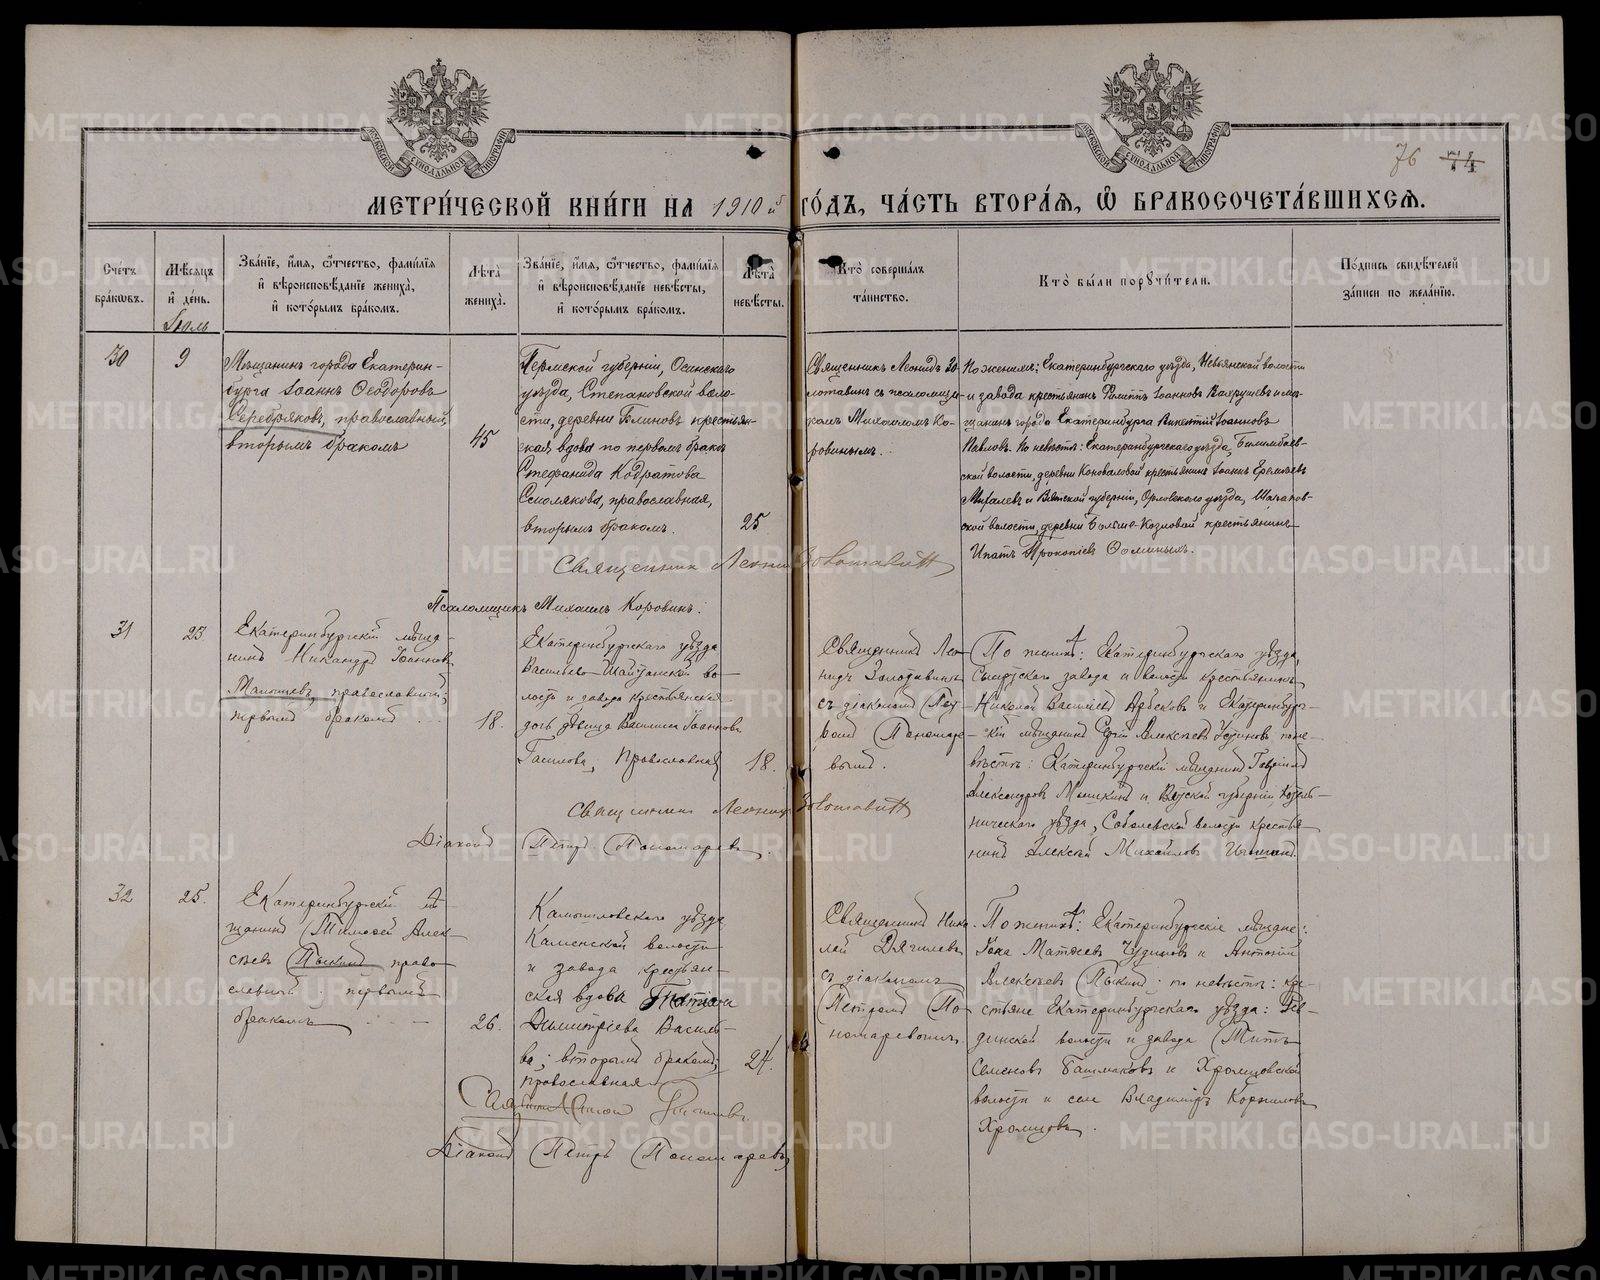 76 74
МЕТРИ́ЧЕСКОЙ КНИ́ГИ НА 1910 й ГО́ДЪ, ЧА́СТЬ ВТОРА́Ѧ, Ѡ БРАКОСОЧЕТА́ВШИХСѦ.
Сче́тъ бра́кѡвъ.
Мѣ́сѧцъ и҆ де́нь.
Іюль
Зва́нїе, и҆́мѧ, ѻ҆́тчество, фами́лїѧ
и҆ вѣроисповѣ́данїе жениха̀,
и҆ кото́рымъ бра́комъ.
Лѣта̀ жениха̀.
Зва́нїе, и҆́мѧ, ѻ҆́тчество, фами́лїѧ
и҆ вѣроисповѣ́данїе невѣ́сты,
и҆ кото́рымъ бра́комъ.
Лѣта̀ невѣ́сты.
Кто̀ соверша́лъ
та́инство.
Кто̀ бы́ли порꙋчи́тели.
По́дпись свидѣ́телей
за́писи по жела́нїю.
30
9
Мѣщанинъ города Екатерин-
бурга Іоаннъ Ѳеодоровъ
Серебряковъ, православный,
вторымъ бракомъ
45
Пермской губерніи, Осинскаго
уѣзда, Степановской воло-
сти, деревни Блиновъ крестьян-
ская вдова по первомъ бракѣ
Стефанида Кодратова
Смолякова, православная,
вторымъ бракомъ.
25
Священникъ Леонидъ Зо-
лотавинъ съ псаломщи-
комъ Михаиломъ Ко-
ровинымъ.
По женихѣ: Екатеринбургскаго уѣзда, Невьянской волости
и завода крестьянинъ Филиппъ Іоанновъ Вахрушевъ и мѣ-
щанинъ города Екатеринбурга Викентій Іоанновъ
Павловъ. По невѣстѣ: Екатеринбургскаго уѣзда, Билимбаев-
ской волости, деревни Коноваловой крестьянинъ Іоаннъ Еремѣевъ
Михалевъ и Вятской губерніи, Орловскаго уѣзда,
ской волости, деревни Больше-Козловой крестьянинъ
Ипатъ Прокопіевъ Ѳоминыхъ.
Священникъ Леонидъ Золотавинъ
Псаломщикъ Михаилъ Коровинъ.
31
23
Екатеринбургскій мѣща-
нинъ Никандръ Іоанновъ
Малышевъ, православный;
первымъ бракомъ
18.
Екатеринбургскаго уѣзда
Васильево-Шайтанской во-
лости и завода крестьянская
дочь дѣвица Василиса Іоаннова
православная
18.
Священникъ Лео-
нидъ Золотавинъ
съ діакономъ Пет-
ромъ Пономаре-
вымъ.
По женихѣ: Екатеринбургскаго уѣзда,
Сысертскаго завода и волости крестьянинъ
Николай Васильевъ и Екатеринбург-
скій мѣщанинъ Сергій Алексѣевъ Устиновъ по не-
вѣстѣ: Екатеринбургскій мѣщанинъ Гавріилъ
Александровъ и Вятской губерніи Котель-
ническаго уѣзда, Соболевской волости крестья-
нинъ Алексѣй Михайловъ
Священникъ Леонидъ Золотавинъ
Діаконъ Петръ Пономаревъ.
32
25.
Екатеринбургскій мѣ-
щанинъ Тимоѳей Алек-
сѣевъ Пыкинъ право-
славный первымъ
бракомъ
26.
Камышловскаго уѣзда
Каменской волости
и завода крестьян-
ская вдова Татіана
Димитріева Василь-
ва; вторымъ бракомъ;
православная
24.
Священникъ Нико-
лай Дягилевъ
съ діакономъ
Петромъ По-
номаревымъ.
По женихѣ: Екатеринбургскіе мѣщане:
Яковъ Матѳеевъ Чудиновъ и Антоній
Алексѣевъ Пыкинъ: по невѣстѣ: кре-
стьяне Екатеринбургскаго уѣзда: Рев-
динской волости и завода Титъ
Семеновъ Башмаковъ и Хромцовской
волости и села Владиміръ Корниловъ
Хромцовъ.
Діаконъ Петръ Пономаревъ
METRIKI.GASO-URAL.RU